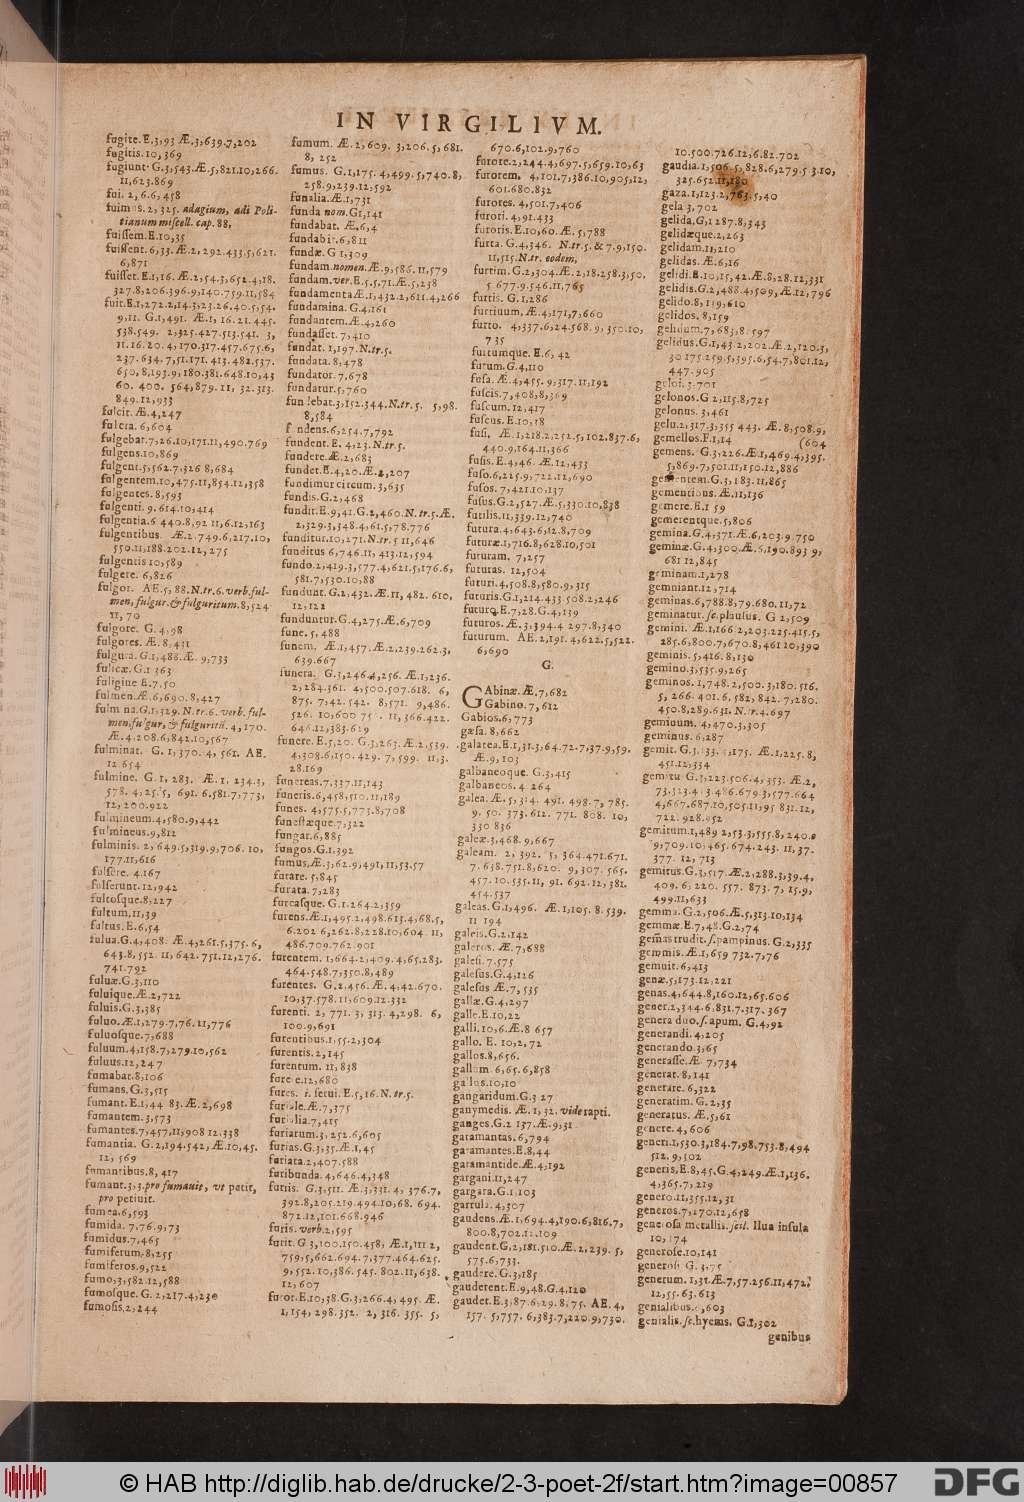 IN VIRGILIVM.
fugite. E.3,93 Æ.3,639.7,202
fugitis.10,369
fugiunt. G.3,543.Æ.5,821.10,266.
11,623.869
fui. 2, 6.6,458
fuimus.2, 325. adagium, adi Poli-
tianum miscell. cap. 88,
fuissem.E.10,35
fuissent.6,33.Æ.2,292.433.5,621.
6,871
fuisset.E.1,16.Æ.2,54.3,652.4,18.
327.8,206.396.9,140.759.11,584
fulcit.Æ.4,247
fulcra.6,604
fulgebat.7,26.10,171.11,490.769
fulgens.10,869
fulgent.5,562.7,326 8,684
fulgentem.10,475.11,854.12,358
fulgentes.8,593
fulgenti. 9.614.10,414
fulgentia.6 440.8,92 11,6.12,163
fulgentibus. Æ.2.749.6,217.10,
550.11,188.202.12,275
fulgentis 10,589
fulgere. 6,826
fulgor. AE.5, 88.N.tr.6.verb.ful-
men,fulgur.&fulguritum.8,524
11, 70
fulgore. G.4,98
fulgores.Æ. 8,431
fulgura.G.1,488.Æ. 9,733
fulicæ.G.1 363
fuligine E.7,50
fulmen.Æ.6,690.8,427
fulminat. G. 1,370.4, 561. AE.
12 654
fulmine. G.1, 283. Æ.1, 234.3,
578. 4,25.5, 691. 6.581.7,773,
12,200.922
fulmineum.4,580.9,442
fulmineus.9,812
fulminis. 2, 649.5,319.9,706. 10,
177.11,616
fulsere. 4.167
fulserunt.12,942
fultosque.8,227
fultum.11,39
fultus.E.6,54
fulua.G.4,408. Æ.4,261.5,375.6,
643.8,552. 11, 642. 751.12,276.
741.792
fuluæ.G.3,110
fuluique.Æ.2,722
fuluis.G.3,385
fuluo.Æ.1,279.7,76.11,776
fuluosque.7,688
fuluum.4,158.7,279.10,562
fuluus.12,247
fumabat.8,106
fumans.G.3,515
fumant.E.1,44 83.Æ.2,698
fumantem.3,573
fumantes.7,457,11,908 12.338
fumantia. G.2,194.542,Æ.10,45.
12, 569
fumantibus.8, 417
fumant.3,3.pro fumauit, vt petit,
pro petiuit.
fumea.6,593
fumida. 7,76.9,73
fumidus.7,465
fumiferum.8,255
fumiferos.9,522
fumo.3,582.12,588
fumosque. G.2,217.4,230
fumosis.2,244
fumum. Æ.2,609. 3,206.5,681.
8, 252
fumus. G.1,175.4,499.5,740.8,
258.9,239.12.592
funalia.Æ.1,731
funda nom.G1,141
fundabat. Æ.6,4
fundabit.6,811
fundæ. G 1,309
fundam.nomen.Æ.9,586.11,579
fundam.ver.E.5.71.Æ.5,238
fundamenta Æ.1,432.2,611.4,266
fundamina. G.4,161
fundantem.Æ.4,260
fundasset. 7,410
fundat. 1,197.N.tr.5.
fundata.8,478
fundator.7,678
fundatur.5,760
fundebat.3,152.344.N.tr.5. 5,98.
8,584
fundent.E. 4,23.N.tr.5.
fundere.Æ.2,683
fundet.E.4,20.Æ.2,207
fundimur circum.3,635
fundis.G.2,468
fundit.E.9,41.G.2,460.N.tr.5.Æ.
2,329.3,348.4,61.5,78.776
funditur.10,271.N.tr.5 11,646
funditus 6,746.11, 413.12,594
fundo.2,419.3,577.4,621.5,176.6,
581.7,530.10,88
fundunt.G.2,432.Æ.11, 482. 610,
12,122
funduntur.G.4,275.Æ.6,709
fune.5, 488
funem. Æ.1,457.Æ.2,239.262.3,
639.667
funere. E.5,20. G.3,263.Æ.2,539.
4,308.6,150. 429. 7, 599. 11,3.
28.169
funereas.7,337.11,143
funeris.6,458,510.11,189
funes. 4,575.5,773.8,708
funestæque.7,322
fungar.6,885
fungos.G.1.392
fumus,Æ.3,62.9,491,11,53.57
furare. 5,845
furata.7,283
furcasque. G.1.264.2,359
furens.Æ.1,495.2,498.613.4,68.5,
6.202 6,262.8,228.10,604 11,
486.709.762.901
furentem. 1,664.2,409.4,65.283.
464.548.7,350.8,489
furentes. G.2.456.Æ.4,42.670.
10,37.578.11,609.12.332
furenti. 2, 771. 3, 313.4,298. 6,
100.9,691
furentibus.1,55.2,304
furentis.2,145
furentum. 11, 838
furere.12,680
fures. i. serui. E.5,16.N.tr.5.
furiale.Æ.7,375
furialia.7,415
furiarum.3, 252.6,605
furias.G.3,35.Æ.1,45
furiata.2,407.588
furibunda. 4,646.4,348
furiis. G.3,511. Æ.3,331.4, 376.7,
392.8,205.219.494.10,68. 694.
872.12,101.668.946
furis.verb.2,595
furit. G 3,100.150.458; Æ.1,111 2,
759.5,662.694.7,377.464.625.
9,552.10,386.545. 802.11,638.
12,607
furor.E.10,38.G.3,266.4,495. Æ.
1,154,298.352. 2, 316. 355. 5,
670.6,102.9,760
furore.2,244.4,697.5,659.10,63
furorem. 4,101.7,386.10,905,12,
601.680.832
furores. 4,501.7,406
furori. 4,91.433
furoris.E.10,60.Æ.5,788
furta. G.4,346. N.tr.5.&.7.9,150.
11,515.N.tr. eodem,
furtim.G.2,304.Æ.2,18.258.3,50.
5 677.9.546.11,765
furtis. G.1,286
furtiuum.Æ.4,171,7,660
furto. 4,337.6,24.568.9, 350.10,
735
furtumque. E.6, 42
furum.G.4,110
fusa.Æ.4,455. 9,317.11,192
fuscis.7,408,8,369
fuscum.12,417
fuscus.E.10,38
fusi. Æ.1,218.2,252.5,102.837.6,
440.9,164.11,366
fusis.E.4,46. Æ.12,433
fuso.6,225.9,722.12,690
fusos. 7,421.10,137
fusus.G.2,527.Æ.5,330.10,838
futilis.11,339.12,740
futura.4,643.6,12.8,709
futuræ.1,716.8,628.10,501
futuram. 7,257
futuras. 12,504
futuri.4,508.8,580.9,315
futuris.G.1,214.433 508.2,246
futuro.E.7,28.G.4,239
futuros.Æ.3,394.4 297.8,340
futurum. AE.2,191.4,622.5,522.
6,690
G.
GAbinæ.Æ.7,682
Gabino.7,612
Gabios.6,773
gæsa.8,662
galatea.E.1,31.3,64.72.7,37.9,39.
Æ.9,103
galbaneoque. G.3,415
galbaneos.4 264
galea.Æ.5,314. 491. 498.7, 785.
9. 50. 373.612. 771. 808. 10,
330 836
galeæ.3,468.9,667
galeam. 2, 392. 5, 364.471.671.
7. 638.751.8,620. 9,307. 565.
457.10.535.11, 91. 692.12,381.
454.537
galeas.G.1,496. Æ.1,105. 8.539.
11 194
galeis.G.2,142
galeros. Æ.7,688
galesi.7.575
galesus.G.4,126
galesus Æ.7,535
gallæ.G.4,297
galle.E.10,22
galli.10,6.Æ.8 657
gallo. E. 10,2,72
gallos.8,656.
gallum 6,65.6,858
gallus.10,10
gangaridum.G.3 27
ganymedis. Æ.1, 32. vide rapti.
ganges.G.2 137.Æ.9,31
garamantas.6,794
garamantes.E.8,44
garamantide.Æ.4,192
gargani.11,247
gargara.G.1,103
garrula.4,307
gaudens.Æ.1,694.4,190.6,816.7,
800.8,702.12.109
gaudent.G.2,181.510.Æ.2,239. 5,
575.6,733.
gaudere.G.3,185
gauderent.E.9,48.G.4.120
gaudet.E.3,87.6,29.8,75. AE.4,
157. 5,757. 6,383.7,220.9,730.
10.500.726.12,6.82.702
gaudia.1,506.5,828.6,279.5 3.10,
325.652.11,180
gaza.1,123.2,763.5,40
gela 3,702
gelida.G,1 287.8,343
gelidæque.2,263
gelidam.11,210
gelidas. Æ.6,16
gelidi.E.10,15,42.Æ.8,28.12,331
gelidis.G.2,488.4,509,Æ.12,796
gelido.8,159,610
gelidos. 8,159
gelidum.7,683,8. 597
gelidus.G.1,43.2,202.Æ.2,120.3,
30 175.259.5,395.6,54.7,801.12,
447.905
geloi.3.701
gelonos.G.2,115.8,725
gelonus. 3,461
gelu.2,317.3,355 443. Æ.8,508.9,
gemellos.E.1,14 (604
gemens. G.3,226.Æ.1,469.4,395.
5,869.7,501.11,150.12,886
gementem.G.3,183.11,865
gementibus.Æ.11,136
gemere.E.1 59
gemerentque.5,806
gemina.G.4,371.Æ.6,203.9 750
geminæ.G.4,300.Æ.5,190.893 9,
681 12,845
geminam.1,278
geminant.12,714
geminas.6,788.8,79.680.11,72
geminatur.sc.plausus. G 2,509
gemini. Æ.1,166.2,203.225.415.5,
285.6,800.7,670.8,461 10,390
geminis.5,416.8,130
gemino.3,535.9,265
geminos. 1,748.2,500.3,180.516.
5, 266. 401. 6, 582, 842. 7,280.
450.8,289.631. N.tr.4.697
geminum. 4,470.3,305
geminus.6,287
gemit. G.3,133.4,175. Æ.1,225.8,
451.12,334
gemitum.1,489 2,53.3,555.8,240.
9,709.10,465.674.243. 11,37.
377. 12, 713
gemitus.G.3,517.Æ.2,288.3,39.4,
409. 6, 220. 557. 873. 7, 15.9,
499.11,633
gemma.G.2,506.Æ.5,313.10,134
gemmæ.E.7,48.G.2,74
gemmas trudit. s.pampinus. G.2,335
gemmis.Æ.1,659 732.7,76
gemuit.6,413
genæ.5,173.12,221
genas.4,644.8,160.12,65.606
gener.2,344.6.831.7.317.367
genera duo.s.apum. G.4,92
generandi.4,205
generando.3,65
generasse.Æ 7,734
generat.8,141
generare. 6,322
generatim.G.2,35
generatus. Æ.5,61
genere.4,606
generi.1,530.3,184.7,98.753.8,494
512.9,502
generis.E.8,45.G.4,249.Æ.1,136.
4,365.7,219
genero.11,355.12,31
generos.7,170.12,658
generosa metallis.scil. Ilua insula
10,174
generose.10,141
generosi G. 3,75
generum. 1,31.Æ.7,57.256.11,472,
12,55.63.613
genialibus. ,603
genialis.sc.hyems. G.1,302
genibus
© HAB http://diglib.hab.de/drucke/2-3-poet-2f/start.htm?image=00857
DFG